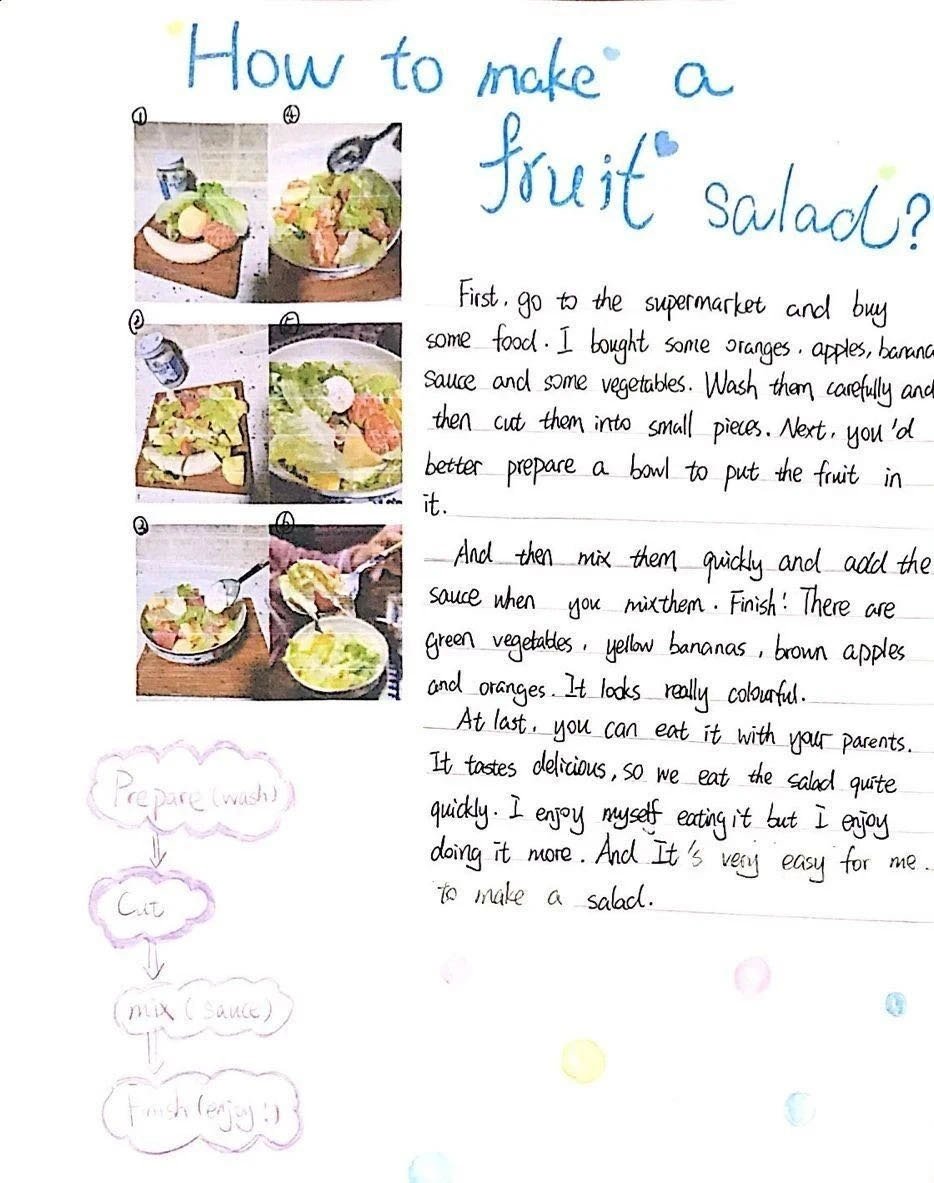 How to make a
fruit salad?
① ④
② ⑤
③ ⑥
First, go to the supermarket and buy
some food. I bought some oranges, apples, banana
sauce and some vegetables. Wash them carefully and
then cut them into small pieces. Next, you'd
better prepare a bowl to put the fruit in
it.
And then mix them quickly and add the
sauce when you mix them. Finish! There are
green vegetables, yellow bananas, brown apples
and oranges. It looks really colourful.
At last, you can eat it with your parents.
It tastes delicious, so we eat the salad quite
quickly. I enjoy myself eating it but I enjoy
doing it more. And It's very easy for me.
to make a salad.
Prepare (wash)
Cut
mix (sauce)
Finish (enjoy!)